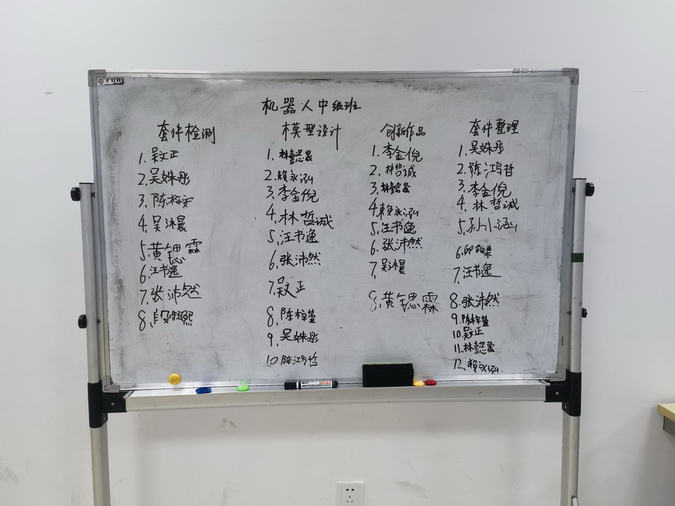 机器人中级班
套件检测
1.吴文正
2.吴姝彤
3.陈梓萱
4.吴沐晨
5.黄锶霖
6.汪书逸
7.张沛然
8.段熙
模型设计
1.林懿晨
2.赖永泓
3.李金倪
4.林哲诚
5.汪书逸
6.张沛然
7.吴文正
8.陈梓萱
9.吴姝彤
10.陈鸿哲
创新作品
1.李金倪
2.林哲诚
3.林懿晨
4.赖永泓
5.汪书逸
6.张沛然
7.吴沐晨
8.黄锶霖
套件整理
1.吴姝彤
2.陈鸿哲
3.李金倪
4.林哲诚
5.孙小涵
6.邱
7.汪书逸
8.张沛然
9.陈梓萱
10.吴文正
11.林懿晨
12.赖永泓